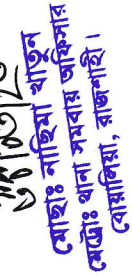 মোছাঃ নাছিমা খাতুন
মেট্রোঃ থানা সমবায় অফিসার
বোয়ালিয়া, রাজশাহী।